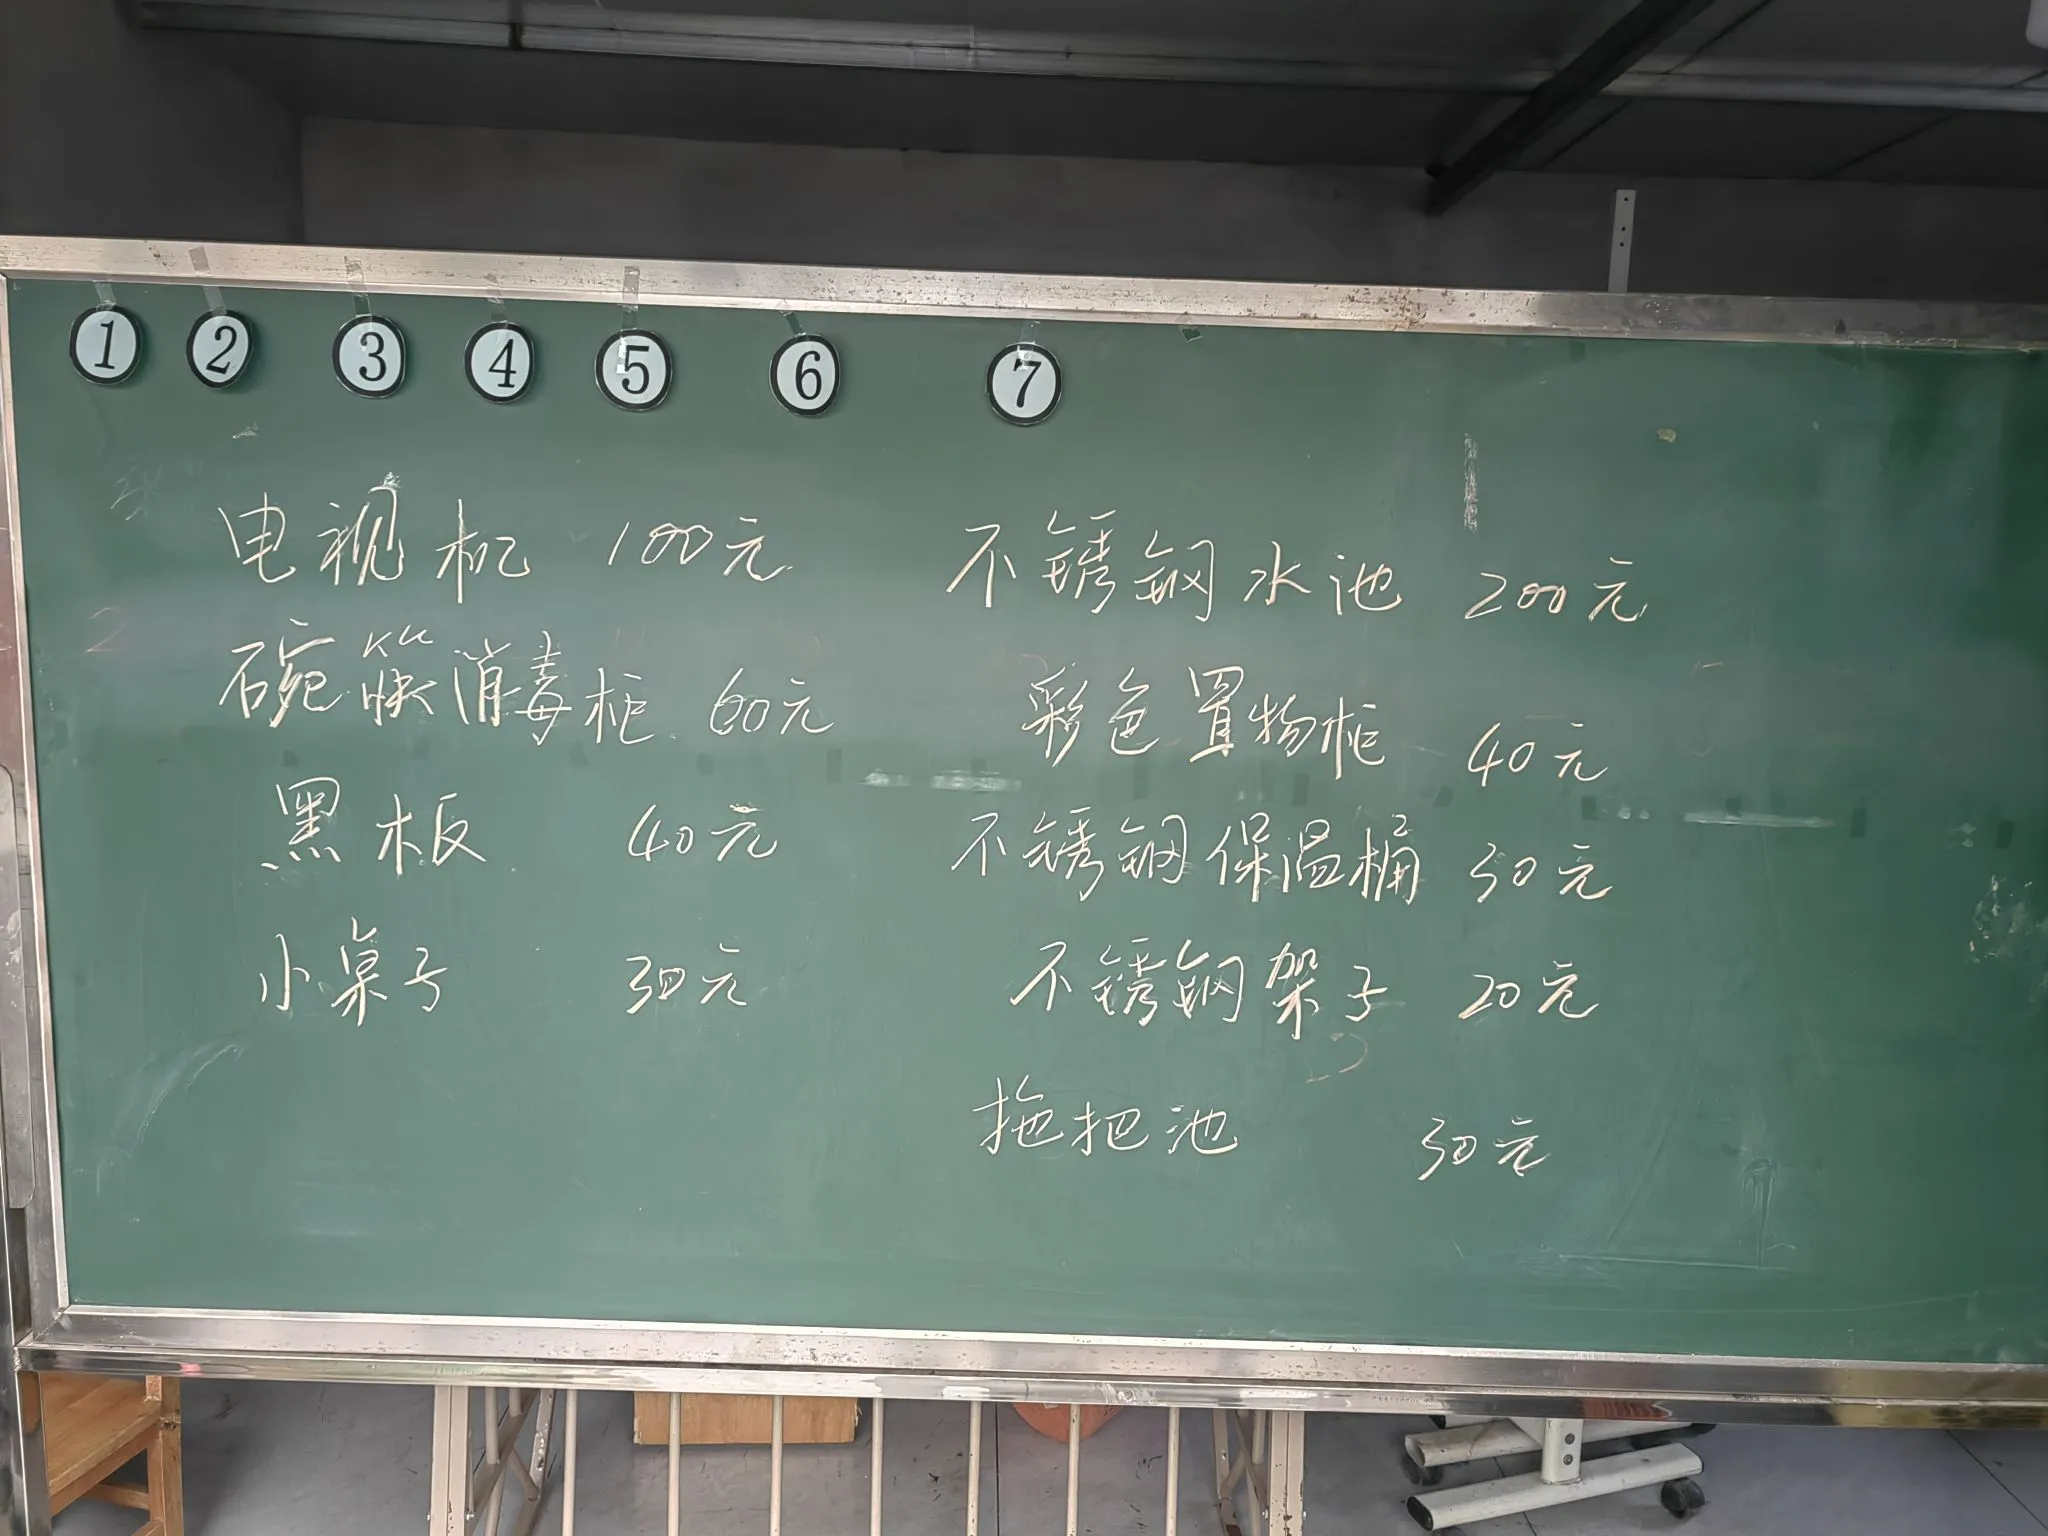 1 2 3 4 5 6 7
电视机 100元 不锈钢水池 200元
碗筷消毒柜 60元 彩色置物柜 40元
黑板 40元 不锈钢保温桶 30元
小桌子 30元 不锈钢架子 20元
拖把池 30元